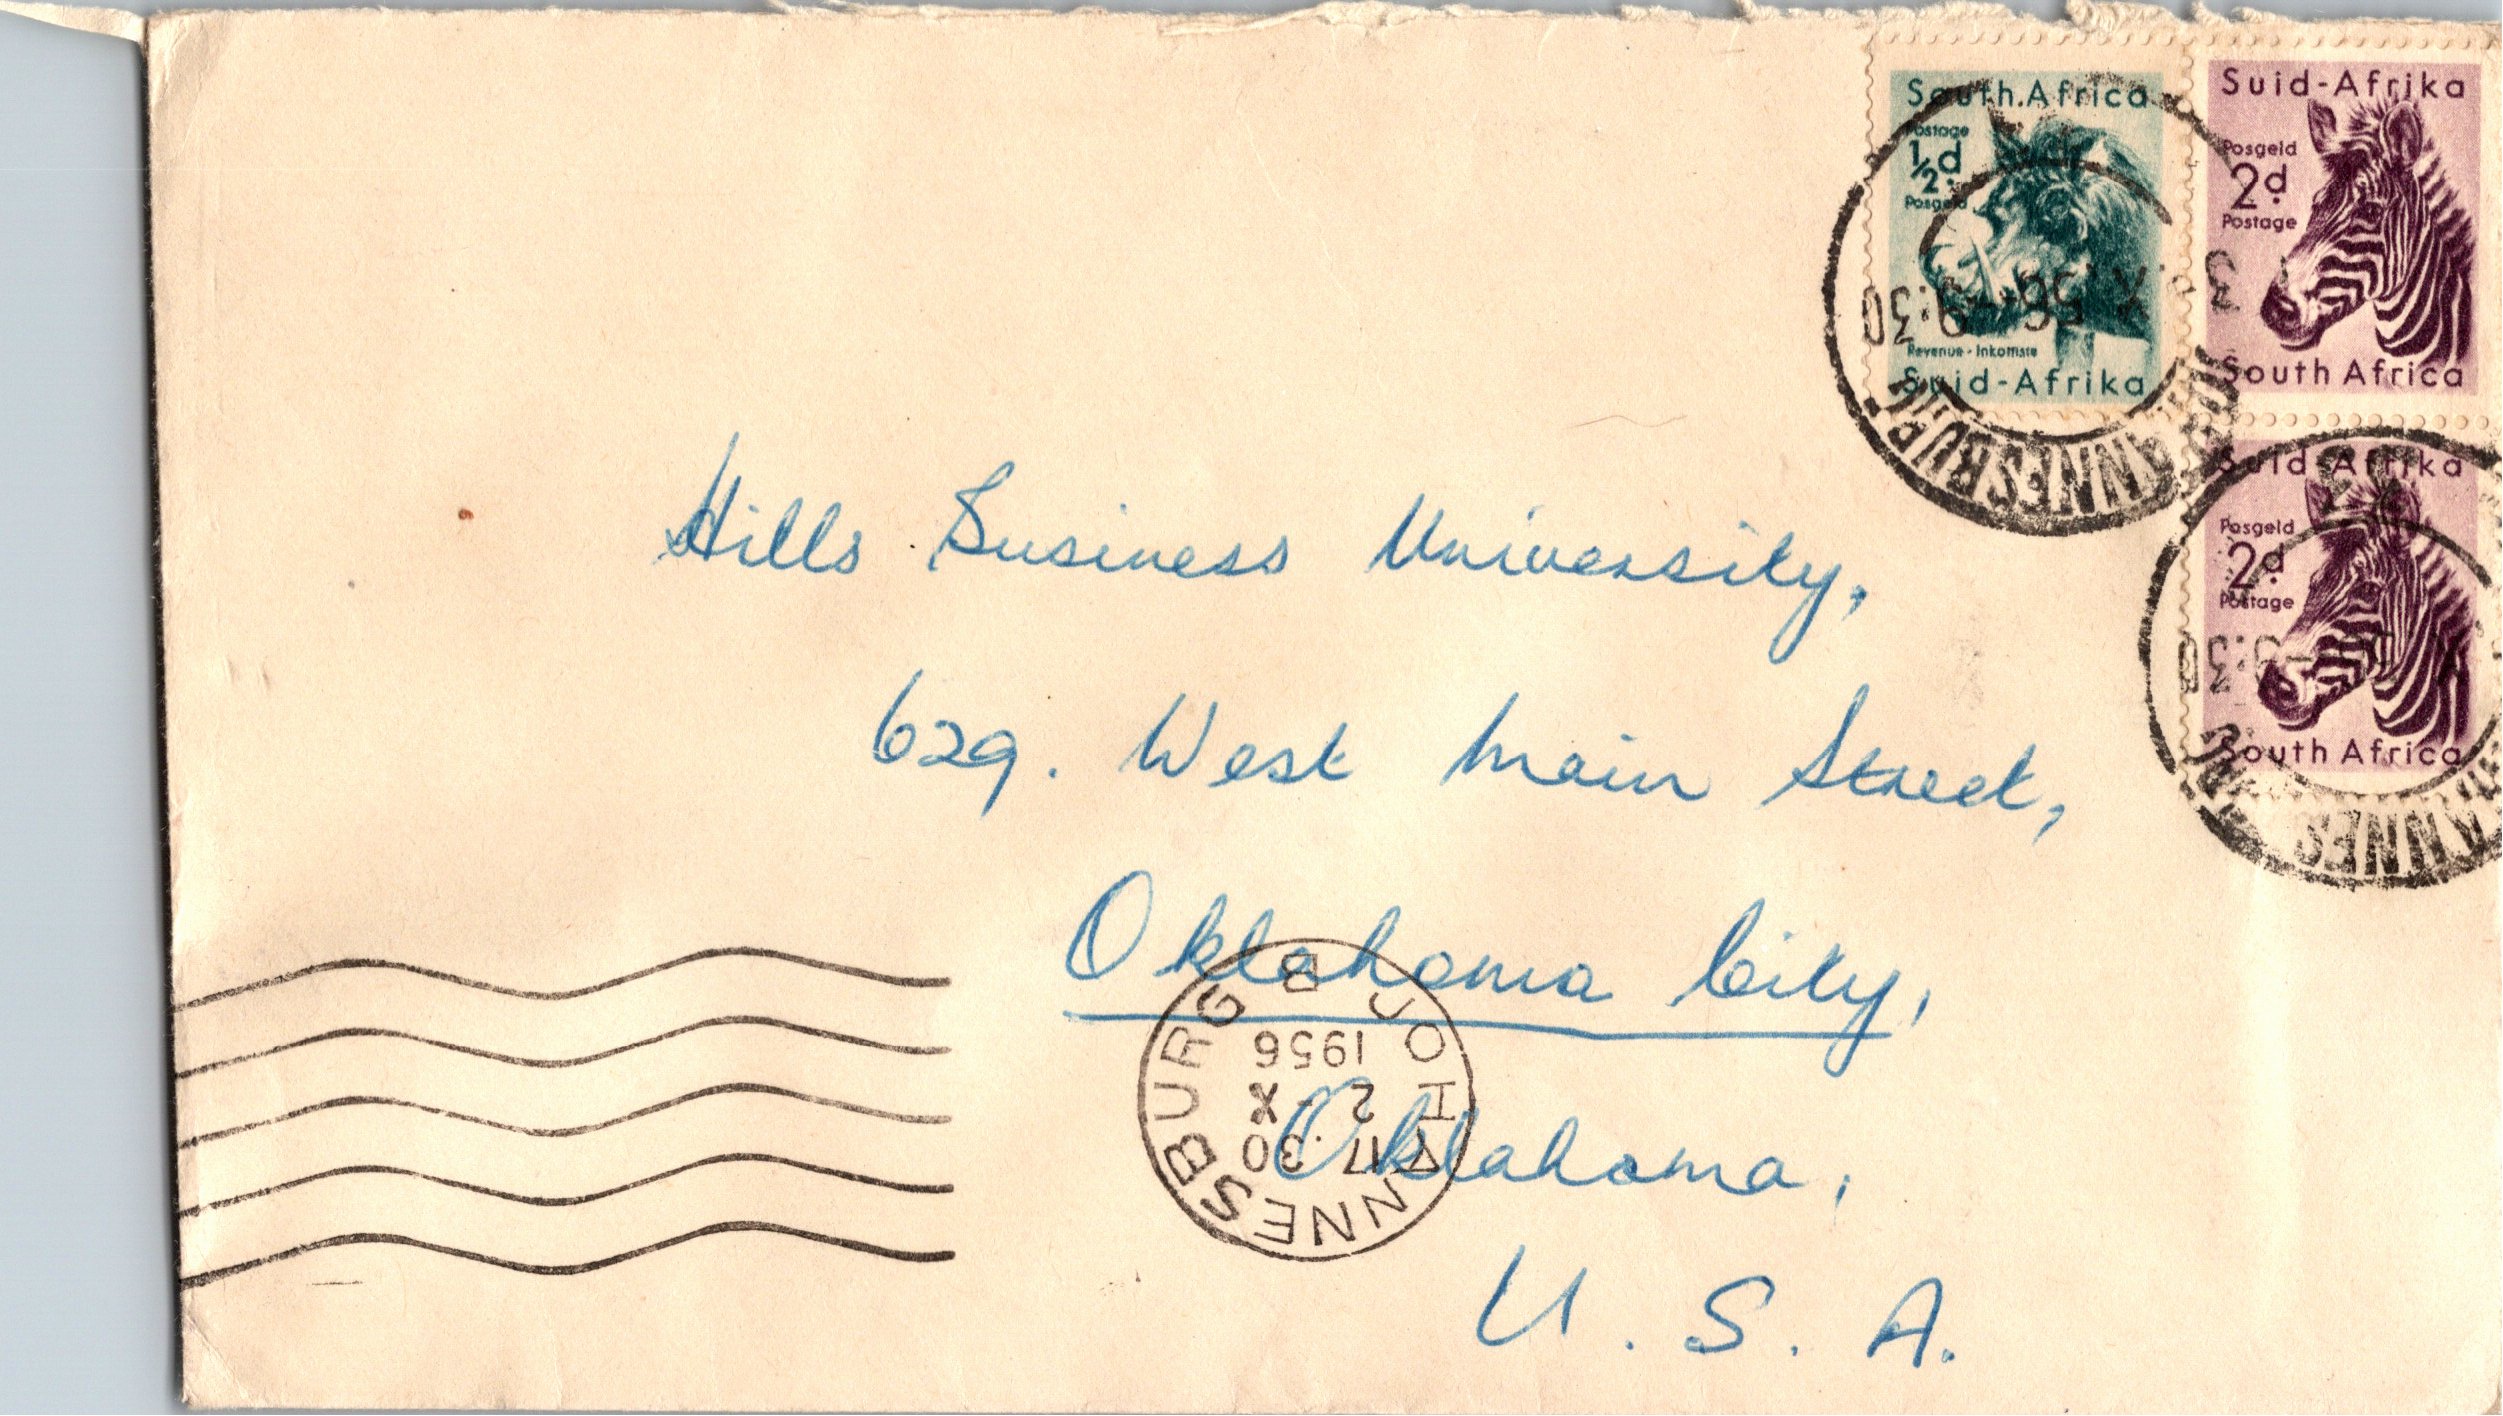 South Africa
Postage
½d.
Posgeld
Revenue - Inkomste
Suid-Afrika
Suid-Afrika
Posgeld
2d.
Postage
South Africa
Suid-Afrika
Posgeld
2d.
Postage
South Africa
JOHANNESBURG
3 X 56 - 9:30
JOHANNES
9:30
Hills Business University,
629. West Main Street,
Oklahoma City,
Oklahoma,
U. S. A.
JOHANNESBURG B
17 30
2 - X
1956